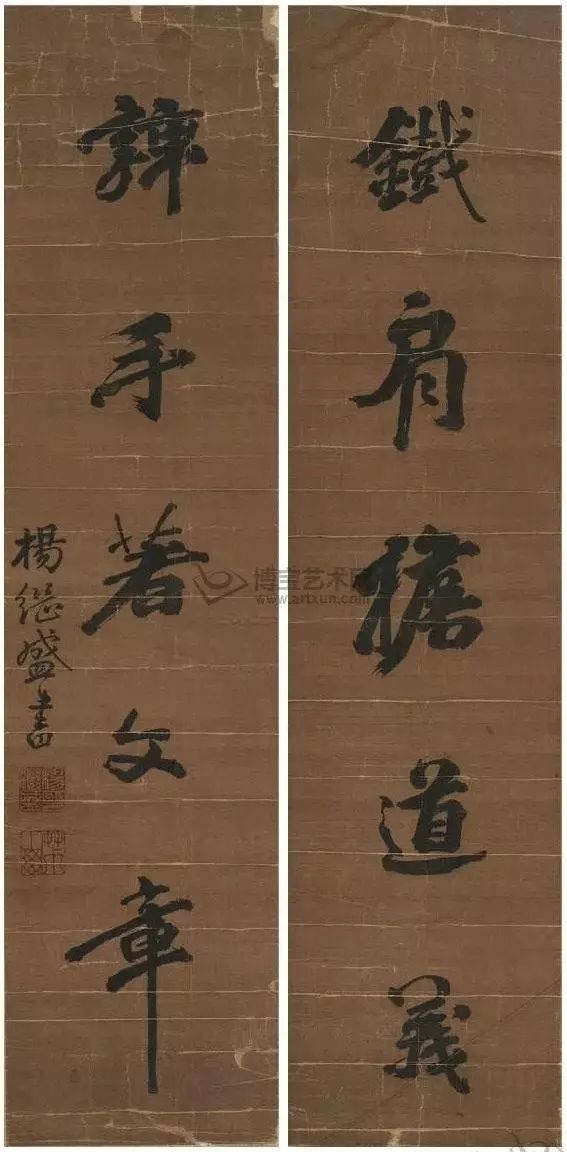 鐵肩擔道義
辣手著文章
楊繼盛書
博宝艺术网
www.artxun.com